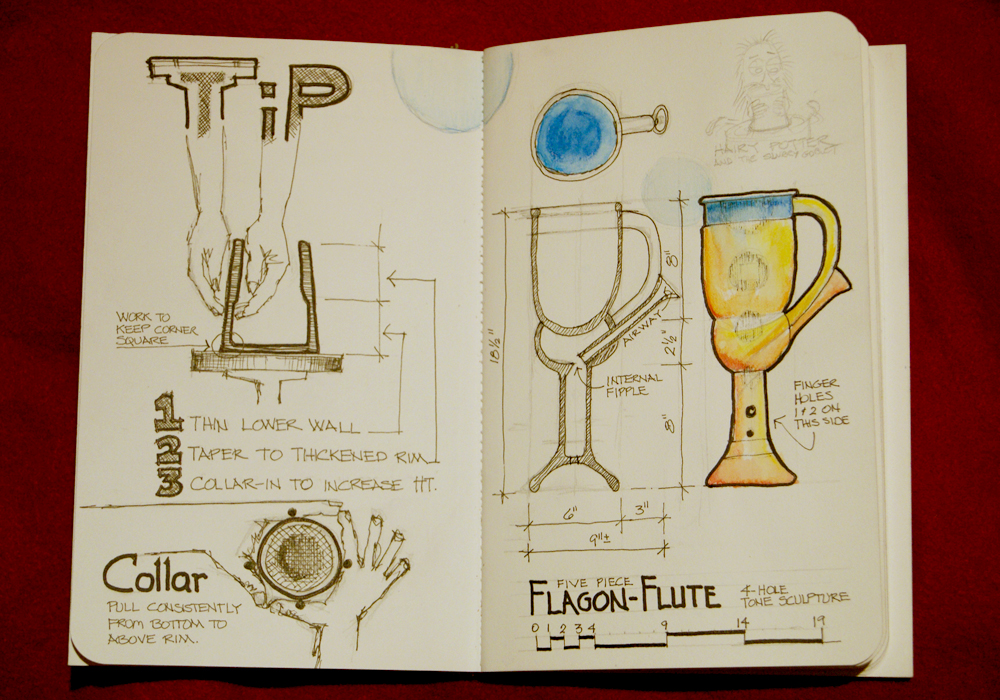 TiP
WORK TO
KEEP CORNER
SQUARE
1 THIN LOWER WALL
2 TAPER TO THICKENED RIM
3 COLLAR-IN TO INCREASE HT.
Collar
PULL CONSISTENTLY
FROM BOTTOM TO
ABOVE RIM.
HARRY POTTER
AND THE
18 1/2"
8"
2 1/2"
8"
AIRWAY
INTERNAL
FIPPLE
FINGER
HOLES
1 & 2 ON
THIS SIDE
6"
3"
9"±
FIVE PIECE
FLAGON-FLUTE
4-HOLE
TONE SCULPTURE
0 1 2 3 4 9 14 19